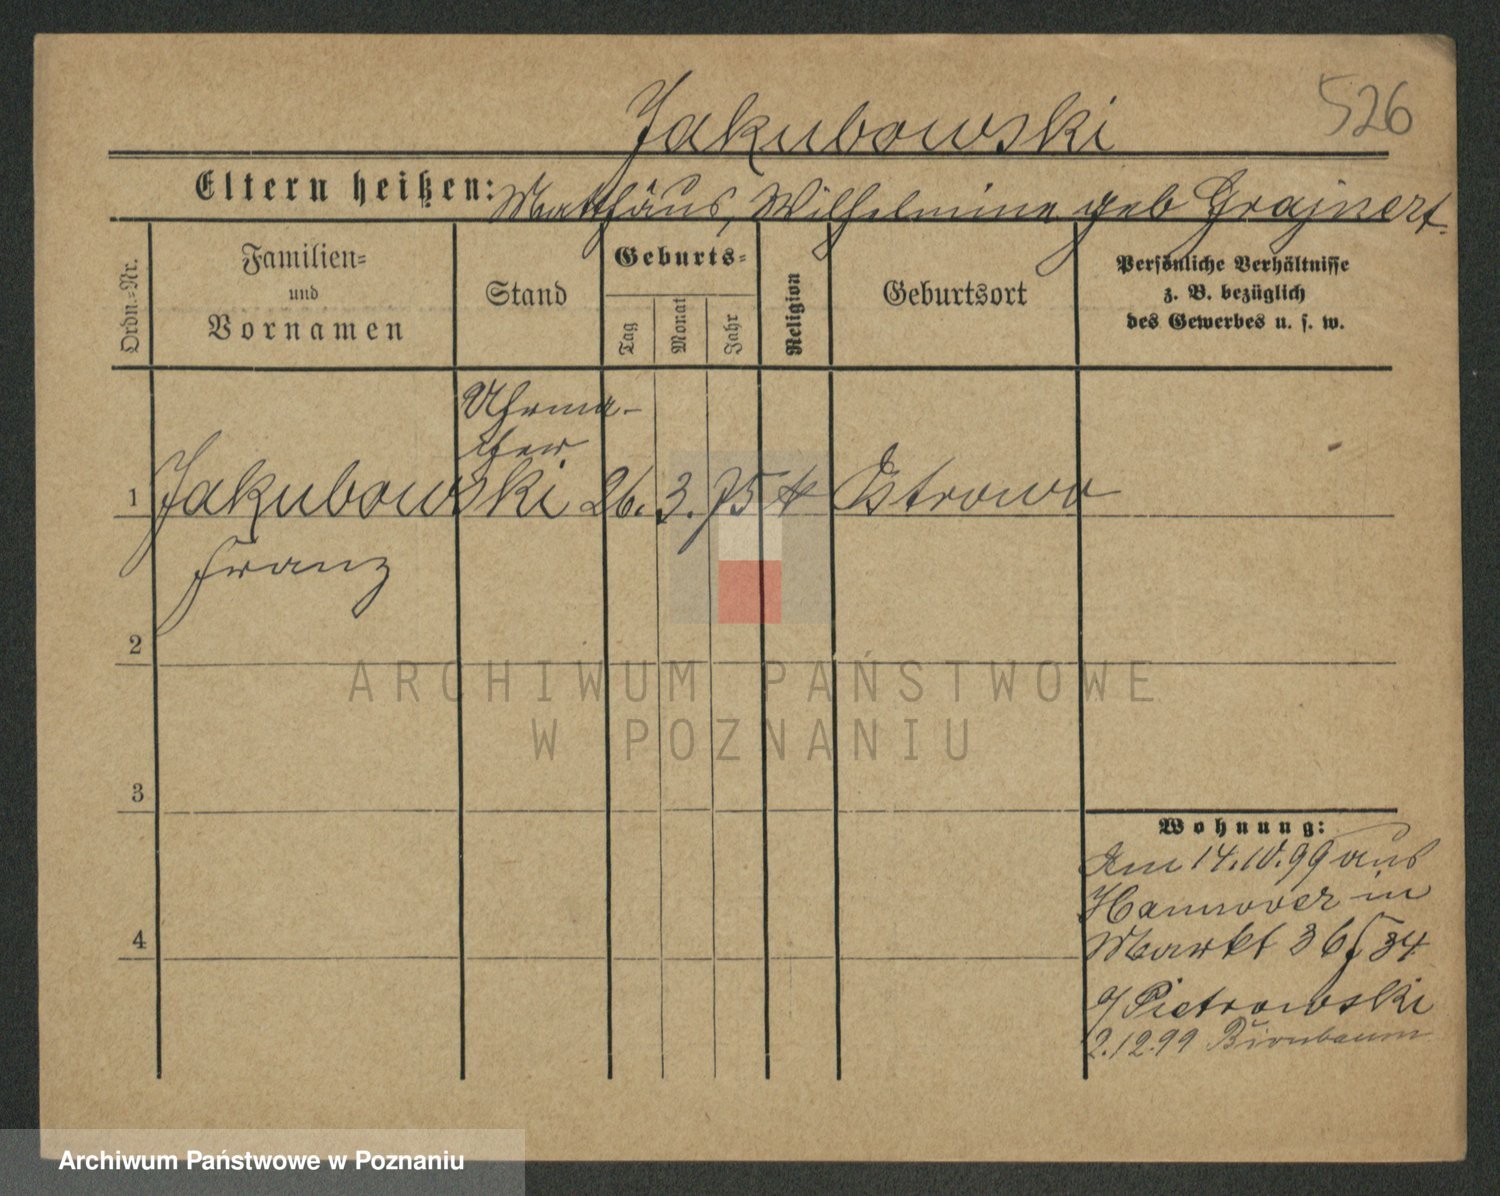 526
Jakubowski
Eltern heißen: Matthäus, Wilhelmine geb Grajnert.
Ordn.-Nr.
Familien-
und
Vornamen
Stand
Geburts-
Tag
Monat
Jahr
Religion
Geburtsort
Persönliche Verhältnisse
z. B. bezüglich
des Gewerbes u. s. w.
Uhrma-
cher
1 Jakubowski 26. 3. 75 Ostrowo
Franz
2
3
4
Wohnung:
Am 14.10.99 aus
Hannover in
Markt 36/34
Pietrowski
2.12.99 Birnbaum
ARCHIWUM PAŃSTWOWE
W POZNANIU
Archiwum Państwowe w Poznaniu